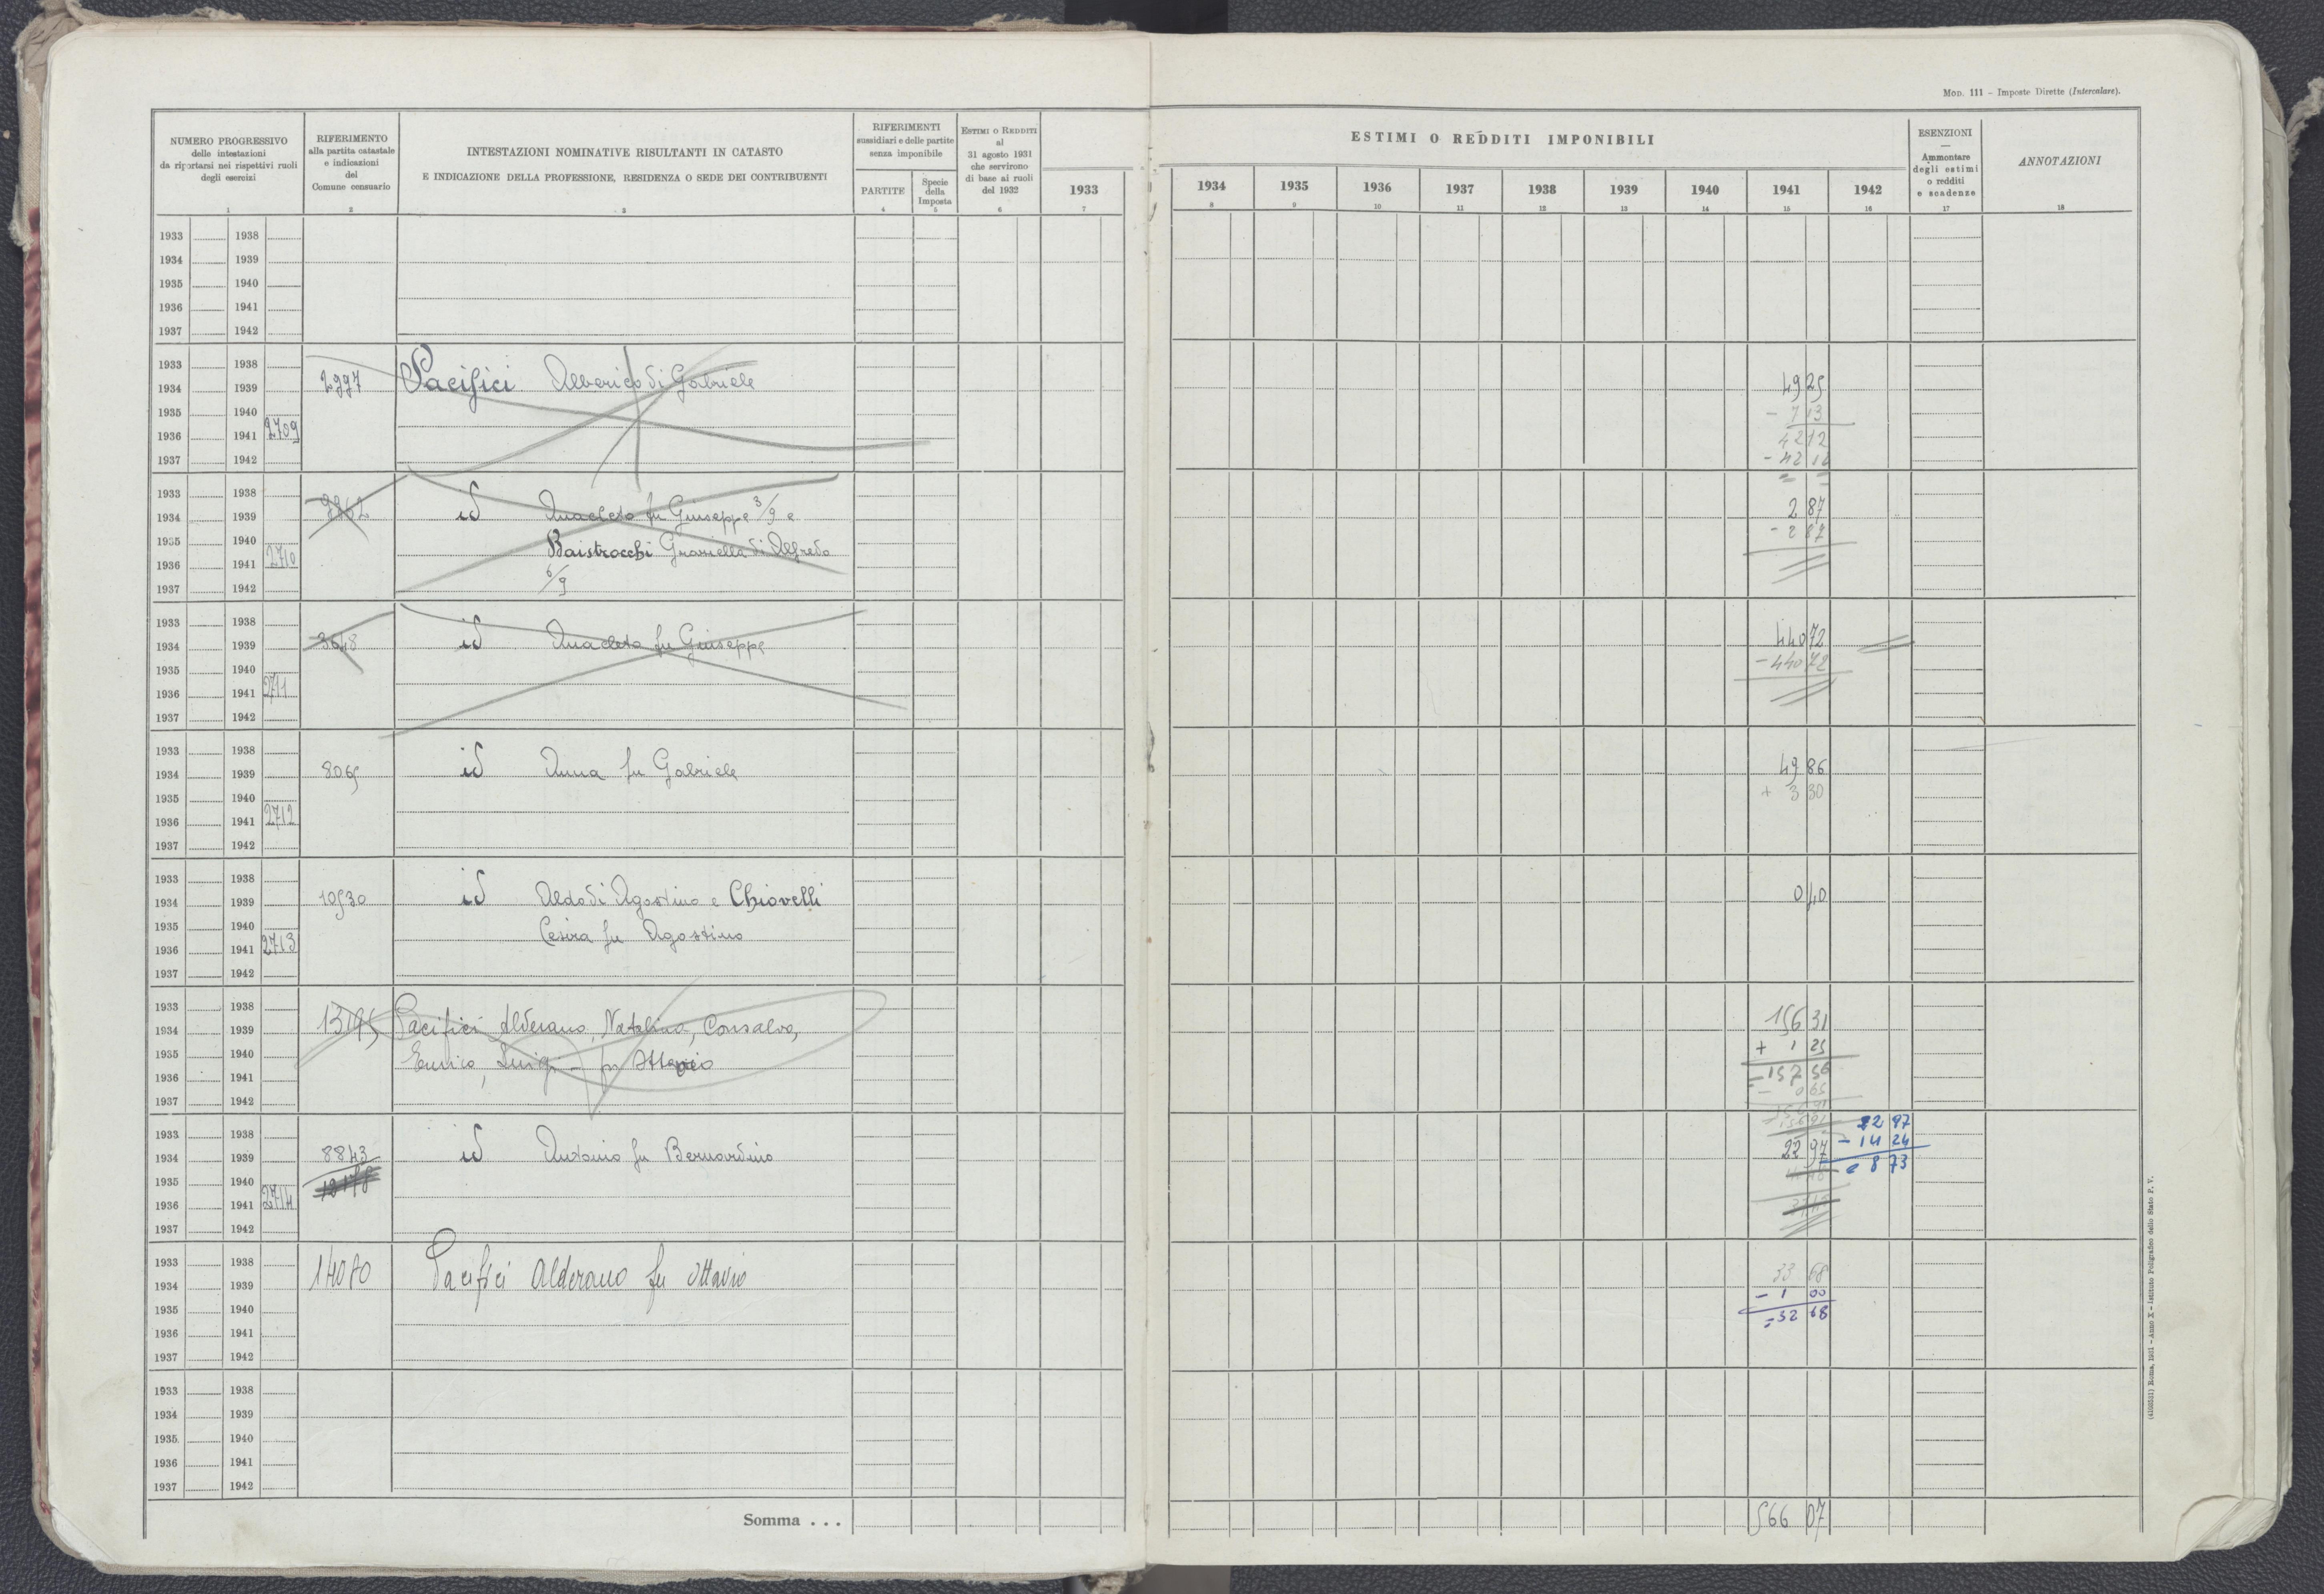 Mod. 111 – Imposte Dirette (Intercalare).
NUMERO PROGRESSIVO
delle intestazioni
da riportarsi nei rispettivi ruoli
degli esercizi
1
RIFERIMENTO
alla partita catastale
e indicazioni
del
Comune censuario
2
INTESTAZIONI NOMINATIVE RISULTANTI IN CATASTO
E INDICAZIONE DELLA PROFESSIONE, RESIDENZA O SEDE DEI CONTRIBUENTI
3
RIFERIMENTI
sussidiari e delle partite
senza imponibile
PARTITE
4
Specie
della
Imposta
5
ESTIMI O REDDITI
al
31 agosto 1931
che servirono
di base ai ruoli
del 1932
6
ESTIMI O REDDITI IMPONIBILI
1933 1934 1935 1936 1937 1938 1939 1940 1941 1942
7 8 9 10 11 12 13 14 15 16
ESENZIONI
—
Ammontare
degli estimi
o redditi
e scadenze
17
ANNOTAZIONI
18
1933 1938
1934 1939
1935 1940
1936 1941
1937 1942
1933 1938
1934 1939 2997 Pacifici Alberico di Gabriele 49 25
1935 1940 - 7 13
1936 1941 2709 42 12
1937 1942 - 42 12
1933 1938
1934 1939 id Anacleto fu Giuseppe 3/9 e 2 87
1935 1940 - 2 87
1936 1941 2710 Baistrocchi Graziella di Alfredo
1937 1942 6/9
1933 1938
1934 1939 3648 id Anacleto fu Giuseppe 440 72
1935 1940 - 440 72
1936 1941 2711
1937 1942
1933 1938
1934 1939 8065 id Anna fu Gabriele 49 86
1935 1940 + 3 30
1936 1941 2712
1937 1942
1933 1938
1934 1939 10530 id Aldo di Agostino e Chiovelli 0 40
1935 1940 Cesira fu Agostino
1936 1941 2713
1937 1942
1933 1938
1934 1939 13195 Pacifici Alderano, Natalino, Consalvo, 156 31
1935 1940 Enrico, Luigi – fu Ottavio + 1 25
1936 1941 = 157 56
1937 1942 - 0 65
156 91
1933 1938 22 97
1934 1939 8843 id Antonio fu Bernardino 22 97 - 14 24
1935 1940 12178 8 73
1936 1941 2714
1937 1942
1933 1938
1934 1939 14080 Pacifici Alderano fu Ottavio 33 68
1935 1940 - 1 00
1936 1941 = 32 68
1937 1942
1933 1938
1934 1939
1935 1940
1936 1941
1937 1942
Somma . . . 566 07
(4160531) Roma, 1931 – Anno X – Istituto Poligrafico dello Stato P. V.